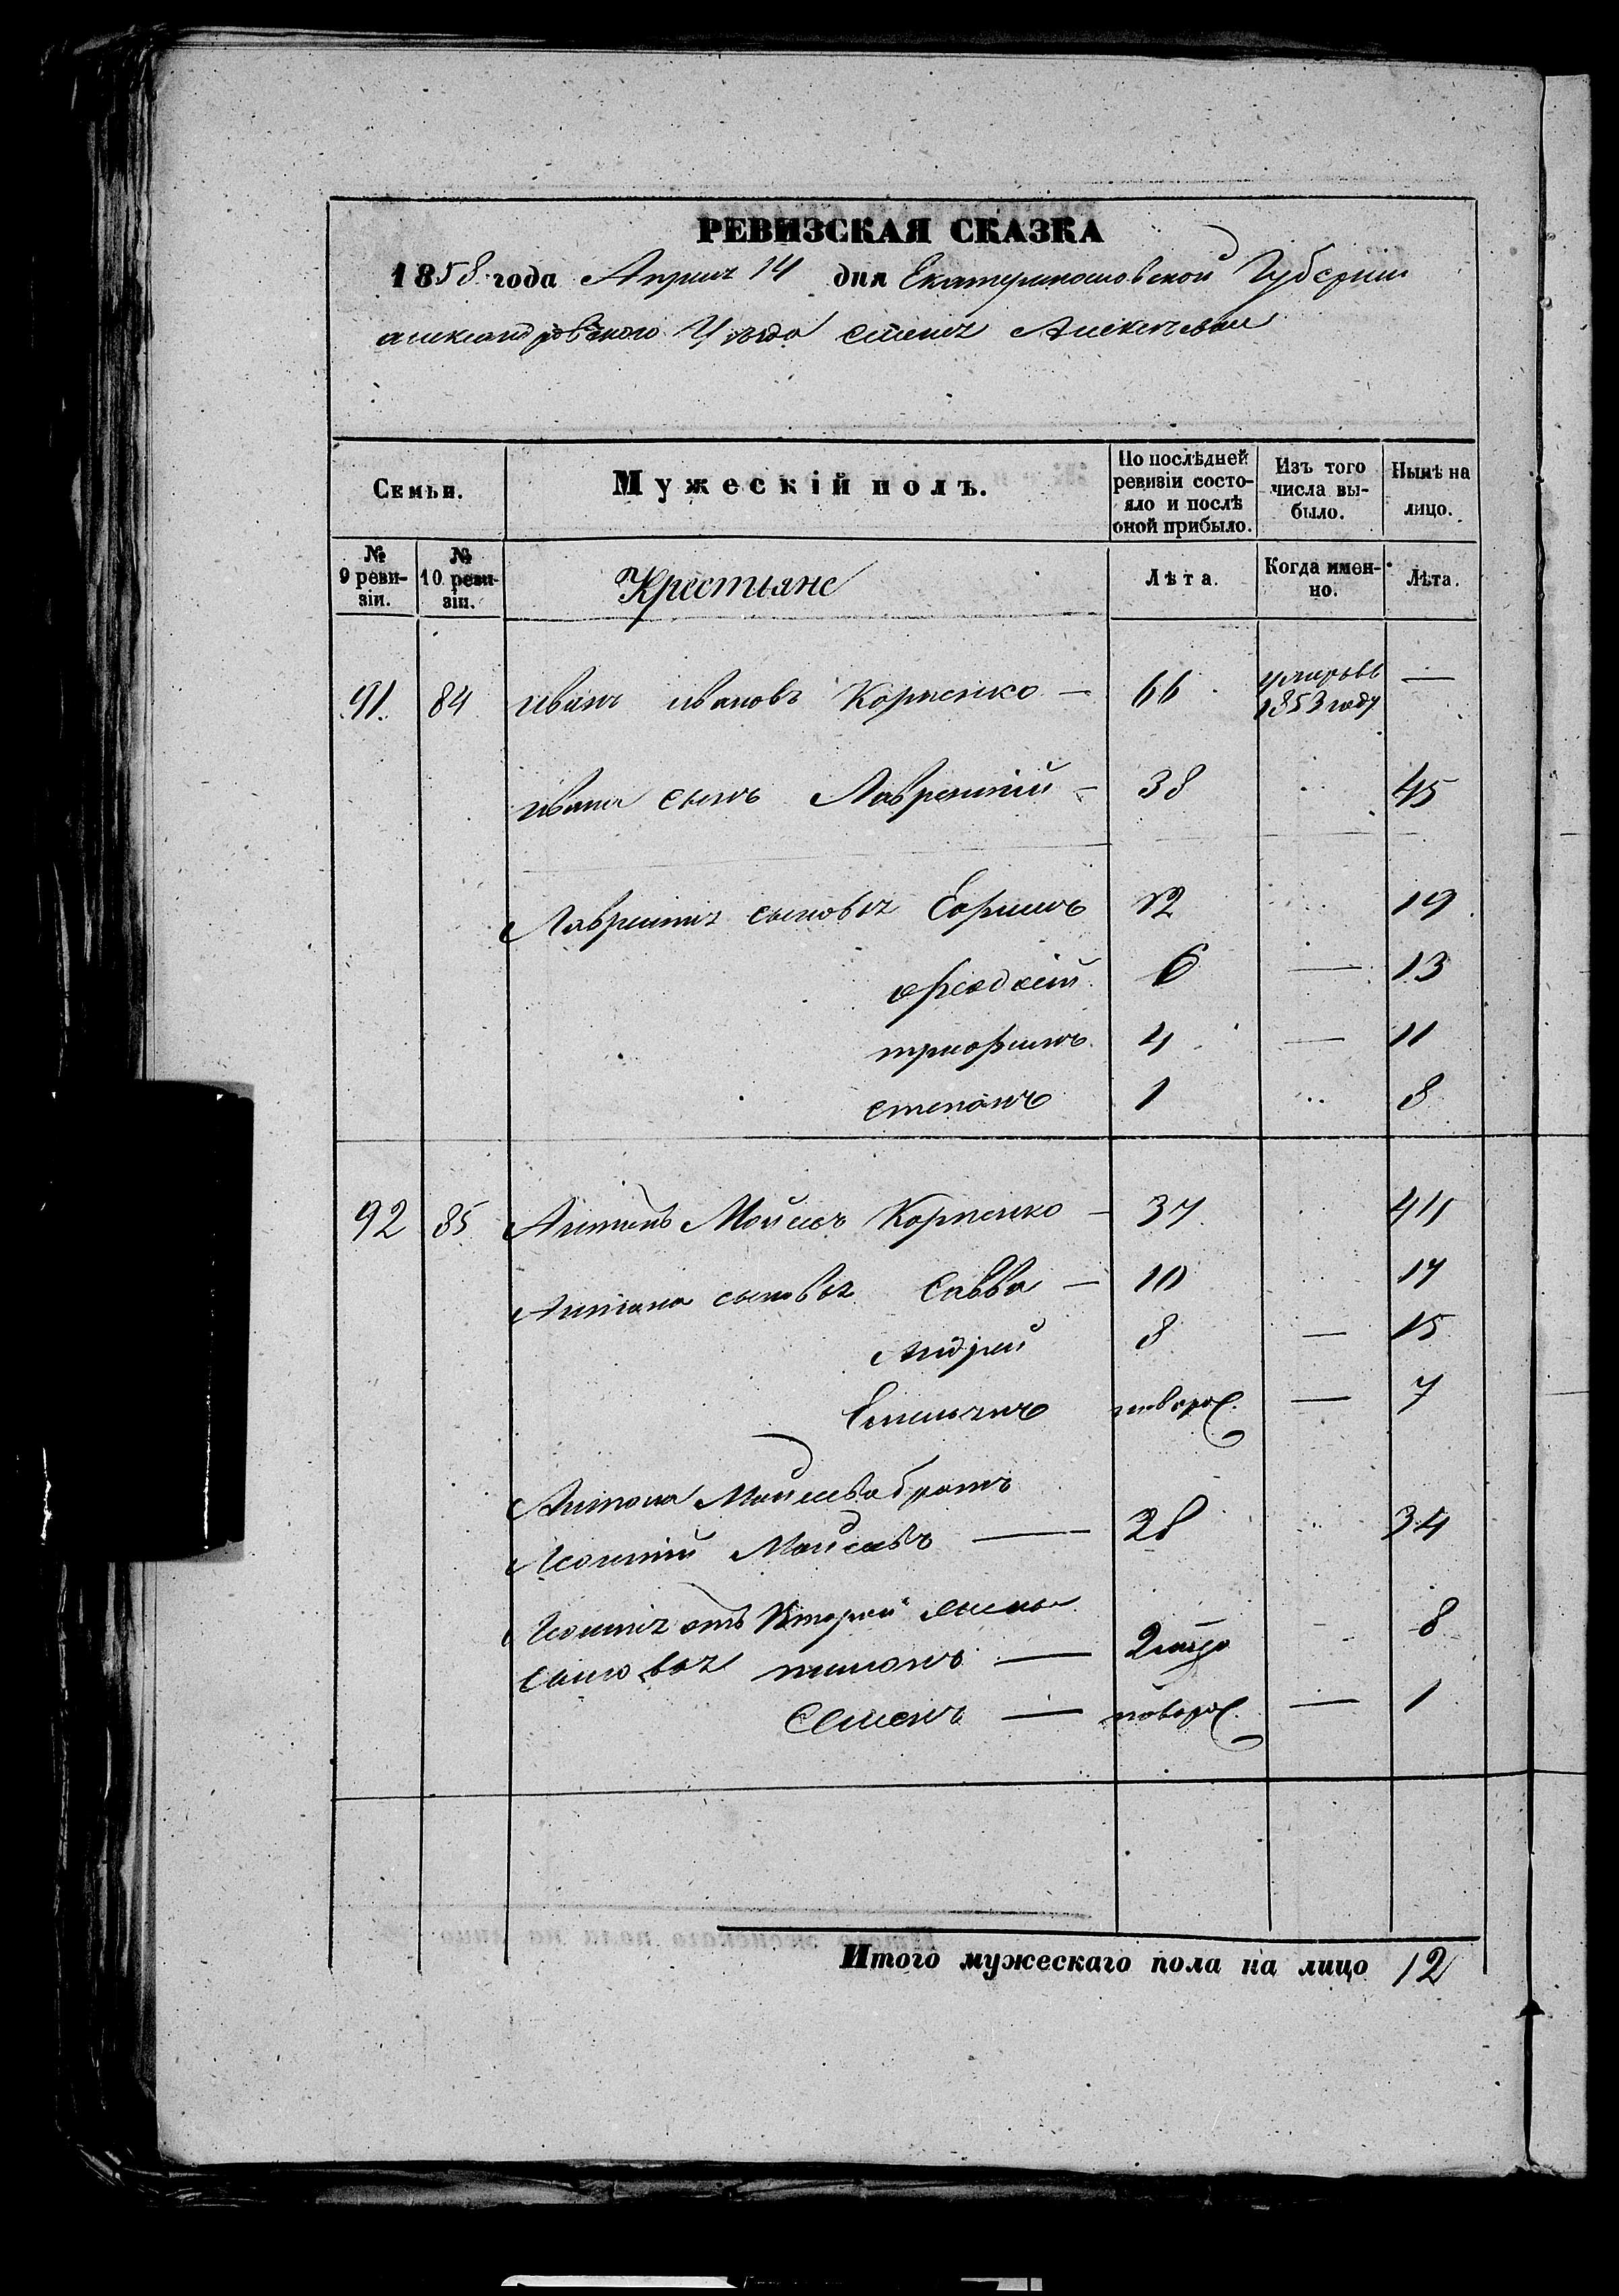 РЕВИЗСКАЯ СКАЗКА
1858 года Апреля 14 дня Екатеринославской Губернии
александровского Уезда
Семьи.
Мужескій полъ.
По послѣдней ревизіи состояло и послѣ оной прибыло.
Изъ того числа выбыло.
Нынѣ на лицо.
№ 9 ревизіи.
№ 10 ревизіи.
Крестьяне
Лѣта.
Когда именно.
Лѣта.
91. 84 иванъ ивановъ Корненко — 66 умеръ въ 1853 году —
ивана сынъ Лаврентій — 38 45
Лаврентія сыновья Ефимъ 12 19
6 — 13
трофимъ 4 — 11
степанъ 1 8
92 85 Антонъ Корненко — 37 44
Антона сыновья Савва — 10 17
Андрей 8 — 15
Емельянъ новорож. — 7
Антона братъ
28 34
отъ Второй жены
сыновья — 8
Семенъ — новорож. — 1
Итого мужескаго пола на лицо 12